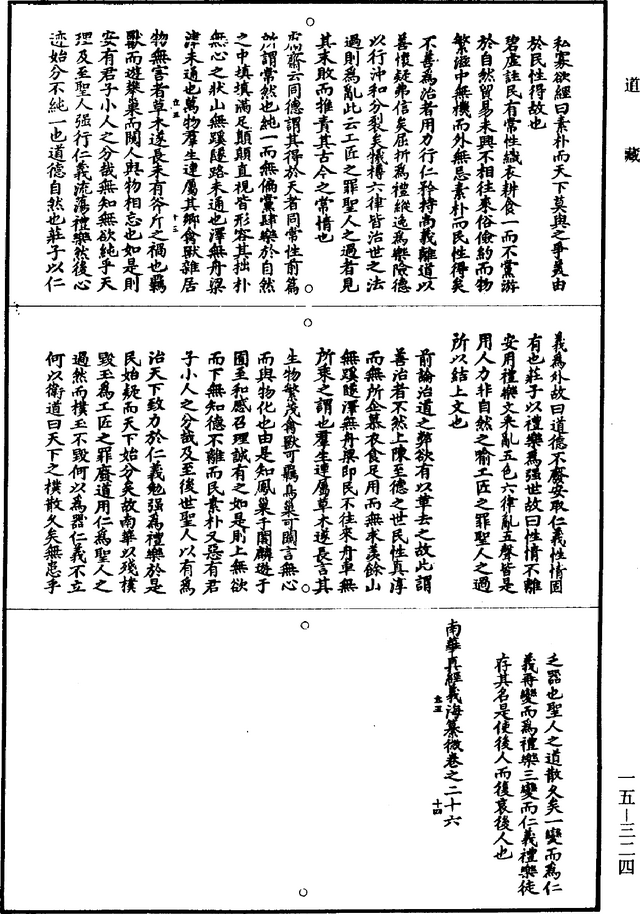 道藏
私寡欲經曰素朴而天下莫與之爭義由
於民性得故也
碧虛註民有常性織衣耕食一而不黨游
於自然貿易未興不相往來俗儉約而物
繁滋中無機而外無忌素朴而民性得矣
不善為治者用力行仁矜持尚義離道以
善懷疑弗信矣屈折為禮縱逸為樂險德
以行沖和分裂矣犧樽六律皆治世之法
過則為亂此云工匠之罪聖人之過者見
其末敗而推責其古今之常情也
鬳齋云同德謂其得於天者同常性前篇
所謂常然也純一而無偏黨肆樂於自然
之中填填滿足顛顛直視皆形容其拙朴
無心之狀山無蹊隧路未通也澤無舟梁
津未通也萬物羣生連屬其鄉禽獸雜居
物無害者草木遂長未有斧斤之禍也羈
獸而遊攀巢而闚人與物相忘也如是則
安有君子小人之分哉無知無欲純乎天
理及至聖人强行仁義流蕩禮樂然後心
迹始分不純一也道德自然也莊子以仁
立五
十三
義為外故曰道德不廢安取仁義性情固
有也莊子以禮樂為强世故曰性情不離
安用禮樂文采亂五色六律亂五聲皆是
用人力非自然之喻工匠之罪聖人之過
所以結上文也
前論治道之弊欲有以革去之故此謂
善治者不然上陳至德之世民性真淳
而無所企慕衣食足用而無求羨餘山
無蹊隧澤無舟梁即民不往來舟車無
所乘之謂也羣生連屬草木遂長言其
生物繁茂禽獸可羈鳥巢可闚言無心
而與物化也由是知鳳巢于閣麟遊于
囿至和感召理誠有之如是則上無欲
而下無知德不離而民素朴又惡有君
子小人之分哉及至後世聖人以有為
治天下致力於仁義勉强為禮樂於是
民始疑而天下始分矣故南華以殘樸
毀玉為工匠之罪廢道用仁為聖人之
過然而樸玉不毀何以為器仁義不立
何以衛道曰天下之樸散久矣無患乎
乏器也聖人之道散久矣一變而為仁
義再變而為禮樂三變而仁義禮樂徒
存其名是使後人而復哀後人也
南華真經義海纂微卷之二十六
立五
十四
一五—三二四